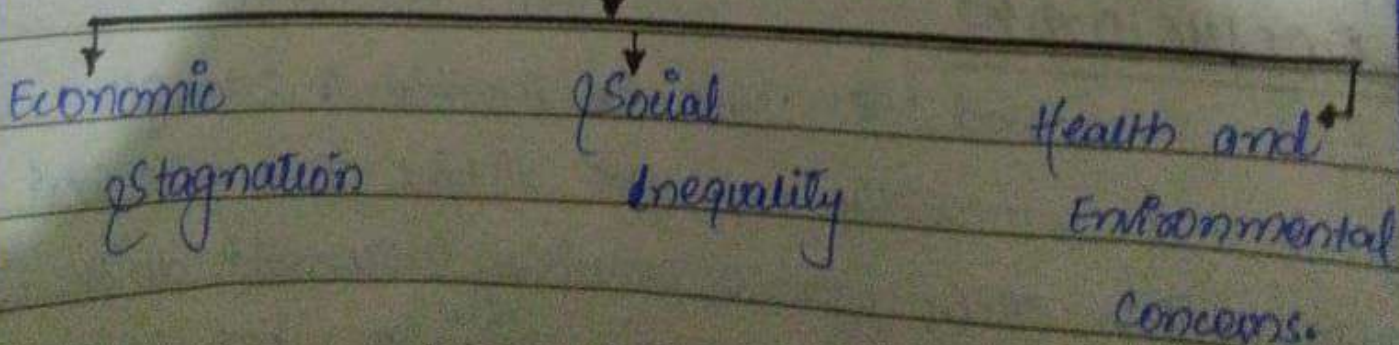 Economic
Stagnation
Social
Inequality
Health and
Environmental
Concerns.